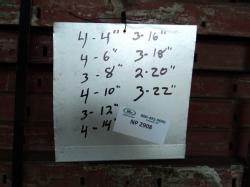 4-4"
4-6"
3-8"
4-10"
3-12"
4-14"
3-16"
3-18"
2-20"
3-22"
NP 2908